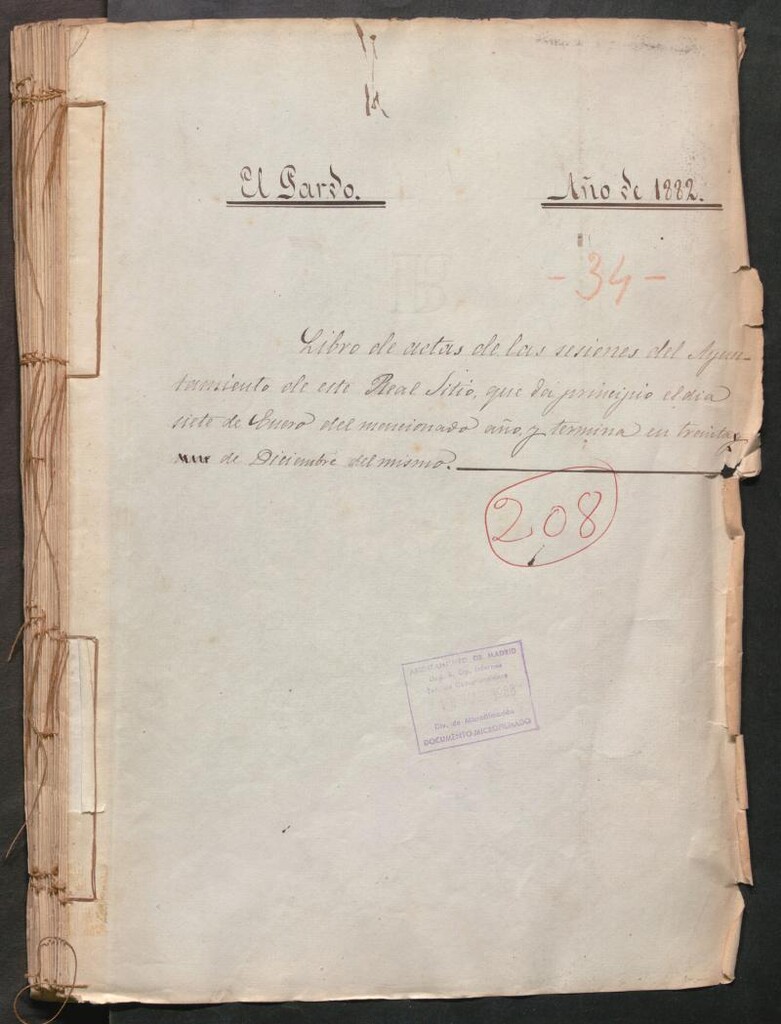 El Pardo.
Año de 1882.
- 34 -
Libro de actas de las sesiones del Ayun-
tamiento de este Real Sitio, que da principio el dia
siete de Enero del mencionado año, y termina en treinta y
de Diciembre del mismo.
208
AYUNTAMIENTO DE MADRID
Cto. de Microfilmación
DOCUMENTO MICROFILMADO